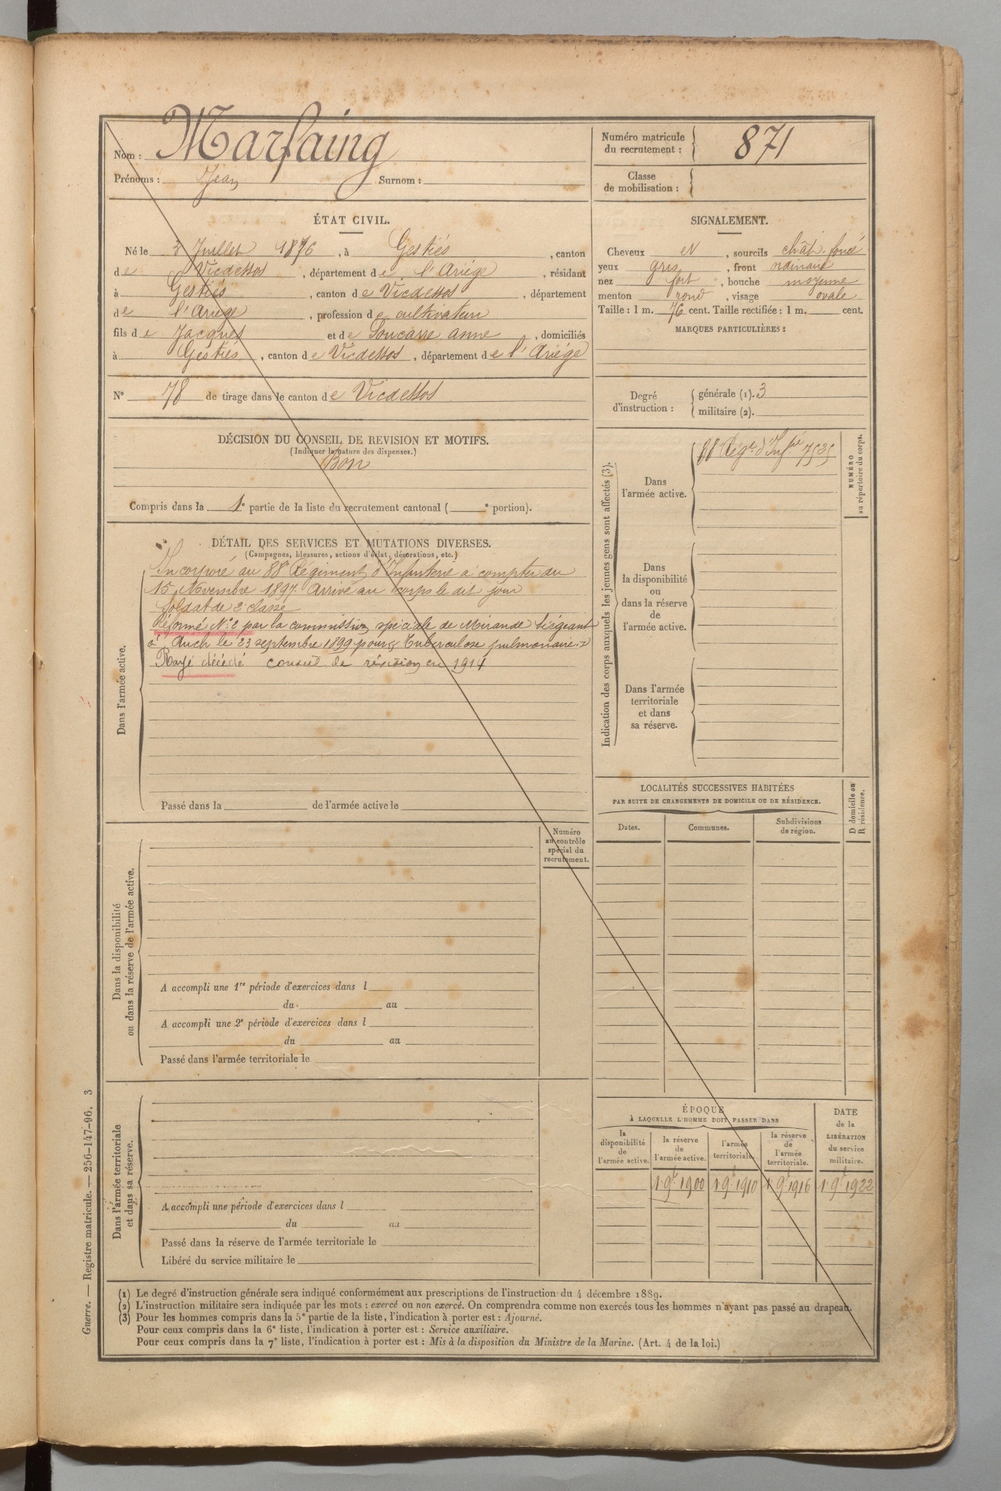 Nom : Marfaing
Prénoms : Jean Surnom :
Numéro matricule du recrutement : 871
Classe de mobilisation :
ÉTAT CIVIL.
Né le 3 Juillet 1876, à Gestiès, canton
de Vicdessos, département de l'Ariège, résidant
à Gestiès, canton de Vicdessos, département
de l'Ariège, profession de cultivateur
fils de Jacques et de Soucasse anne, domiciliés
à Gestiès, canton de Vicdessos, département de l'Ariège
N° 78 de tirage dans le canton de Vicdessos
SIGNALEMENT.
Cheveux et, sourcils chât. foncé
yeux gris, front ordinaire
nez fort, bouche moyenne
menton rond, visage ovale
Taille : 1 m. 76 cent. Taille rectifiée : 1 m. cent.
MARQUES PARTICULIÈRES :
Degré d'instruction : générale (1). 3
militaire (2).
DÉCISION DU CONSEIL DE REVISION ET MOTIFS.
(Indiquer la nature des dispenses.)
Bon
Compris dans la 1e partie de la liste du recrutement cantonal ( e portion).
DÉTAIL DES SERVICES ET MUTATIONS DIVERSES.
(Campagnes, blessures, actions d'éclat, décorations, etc.)
Dans l'armée active.
Incorporé au 88e Régiment d'Infanterie à compter du
15 Novembre 1897. Arrivé au corps le dit jour
Soldat de 2e classe
Réformé N° 2 par la commission spéciale de Mirande siégeant
à Auch le 23 septembre 1899 pour Tuberculose pulmonaire
Rayé décédé conseil de révision en 1914
Passé dans la de l'armée active le
Indication des corps auxquels les jeunes gens sont affectés (3).
NUMÉRO au répertoire du corps.
Dans l'armée active.
88 Rég. d'Infrie 7535
Dans la disponibilité ou dans la réserve de l'armée active.
Dans l'armée territoriale et dans sa réserve.
LOCALITÉS SUCCESSIVES HABITÉES
PAR SUITE DE CHANGEMENTS DE DOMICILE OU DE RÉSIDENCE.
D domicile ou R résidence.
Dates. Communes. Subdivisions de région.
Numéro au contrôle spécial du recrutement.
Dans la disponibilité ou dans la réserve de l'armée active.
A accompli une 1re période d'exercices dans l
du au
A accompli une 2e période d'exercices dans l
du au
Passé dans l'armée territoriale le
Dans l'armée territoriale et dans sa réserve.
A accompli une période d'exercices dans l
du au
Passé dans la réserve de l'armée territoriale le
Libéré du service militaire le
ÉPOQUE
À LAQUELLE L'HOMME DOIT PASSER DANS
la disponibilité de l'armée active.
la réserve de l'armée active.
l'armée territoriale.
la réserve de l'armée territoriale.
DATE de la LIBÉRATION du service militaire.
1 9e 1900 1 9e 1910 1 9e 1916 1 9e 1922
(1) Le degré d'instruction générale sera indiqué conformément aux prescriptions de l'instruction du 4 décembre 1889.
(2) L'instruction militaire sera indiquée par les mots : exercé ou non exercé. On comprendra comme non exercés tous les hommes n'ayant pas passé au drapeau.
(3) Pour les hommes compris dans la 5e partie de la liste, l'indication à porter est : Ajourné.
Pour ceux compris dans la 6e liste, l'indication à porter est : Service auxiliaire.
Pour ceux compris dans la 7e liste, l'indication à porter est : Mis à la disposition du Ministre de la Marine. (Art. 4 de la loi.)
Guerre. — Registre matricule. — 256-147-96. 3